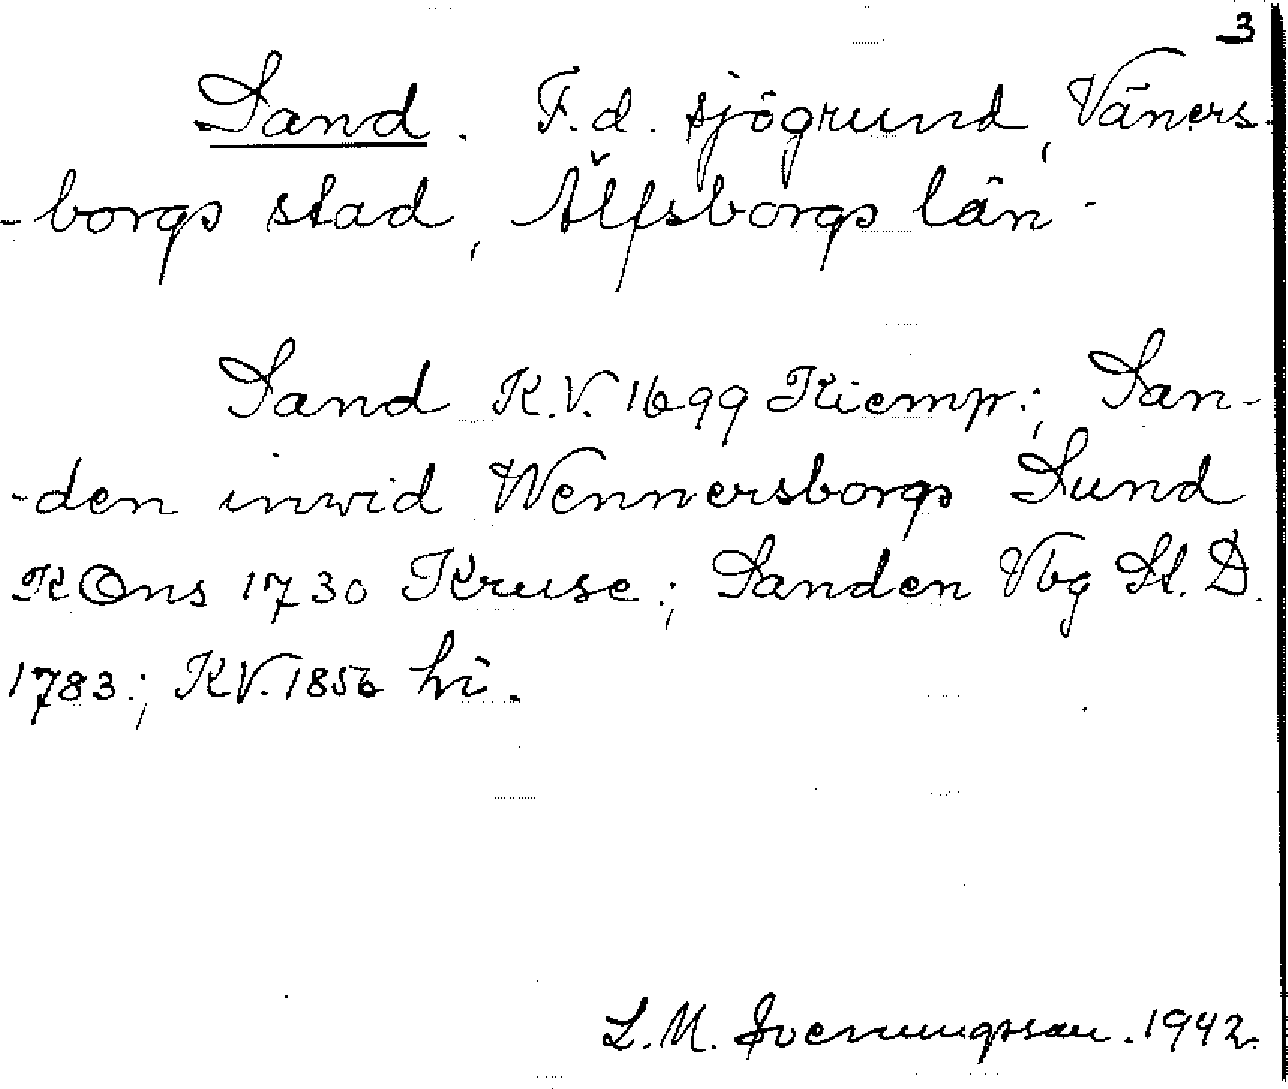 3
Sand. F.d. sjögrund, Väners-
-borgs stad, Älfsborgs län.
Sand K.V. 1699 Kiemp.; San-
-den inwid Wennersborgs Sund
KOns 1730 Kruse; Sanden Vbg St. D.
1783; KV. 1856 hi.
L.M. Svenungsson. 1942.